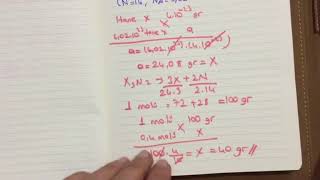 Tane x 4.10⁻²³ gr
6,02.10²³ tane x a
a = (6,02.10²³).(4.10⁻²³)
a = 24,08 gr = X
X₃N₂ → 3X + 2N
24.3 2.14
1 mols = 72 + 28 = 100 gr
1 mols 100 gr
0,4 mols x
100. 4/10 = X = 40 gr //